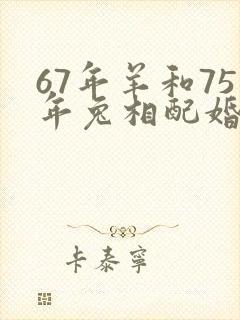 67年羊和75
年兔相配婚
卡泰寧